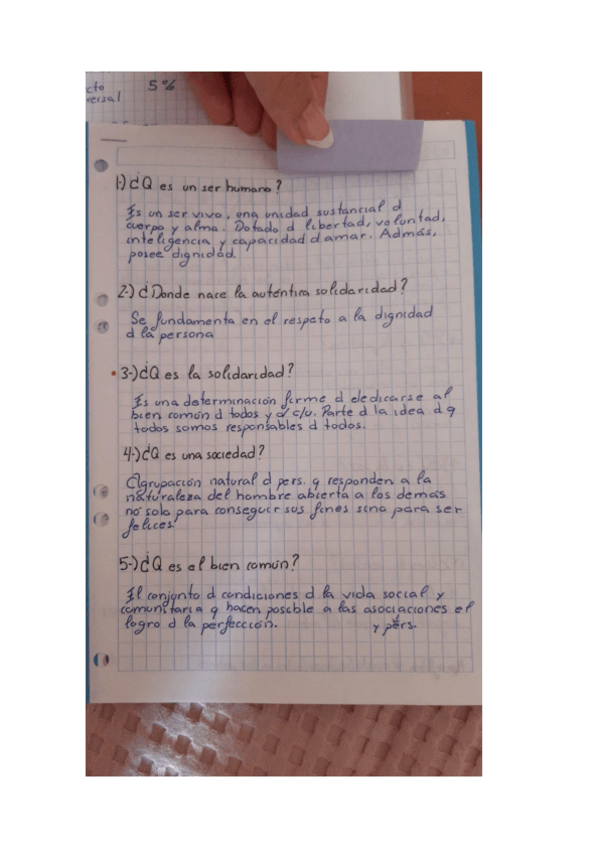 cto 5%
versal
1-) ¿Q es un ser humano?
Es un ser vivo, una unidad sustancial d
cuerpo y alma. Dotado d libertad, voluntad,
inteligencia y capacidad d amar. Admás,
posee dignidad.
2-) ¿Donde nace la auténtica solidaridad?
Se fundamenta en el respeto a la dignidad
d la persona
3-) ¿Q es la solidaridad?
Es una determinación firme d dedicarse al
bien común d todos y d c/u. Parte d la idea d q
todos somos responsables d todos.
4-) ¿Q es una sociedad?
Agrupación natural d pers. q responden a la
naturaleza del hombre abierta a los demás
no solo para conseguir sus fines sino para ser
felices.
5-) ¿Q es el bien común?
El conjunto d condiciones d la vida social y
comunitaria q hacen posible a las asociaciones el
logro d la perfección. y pers.